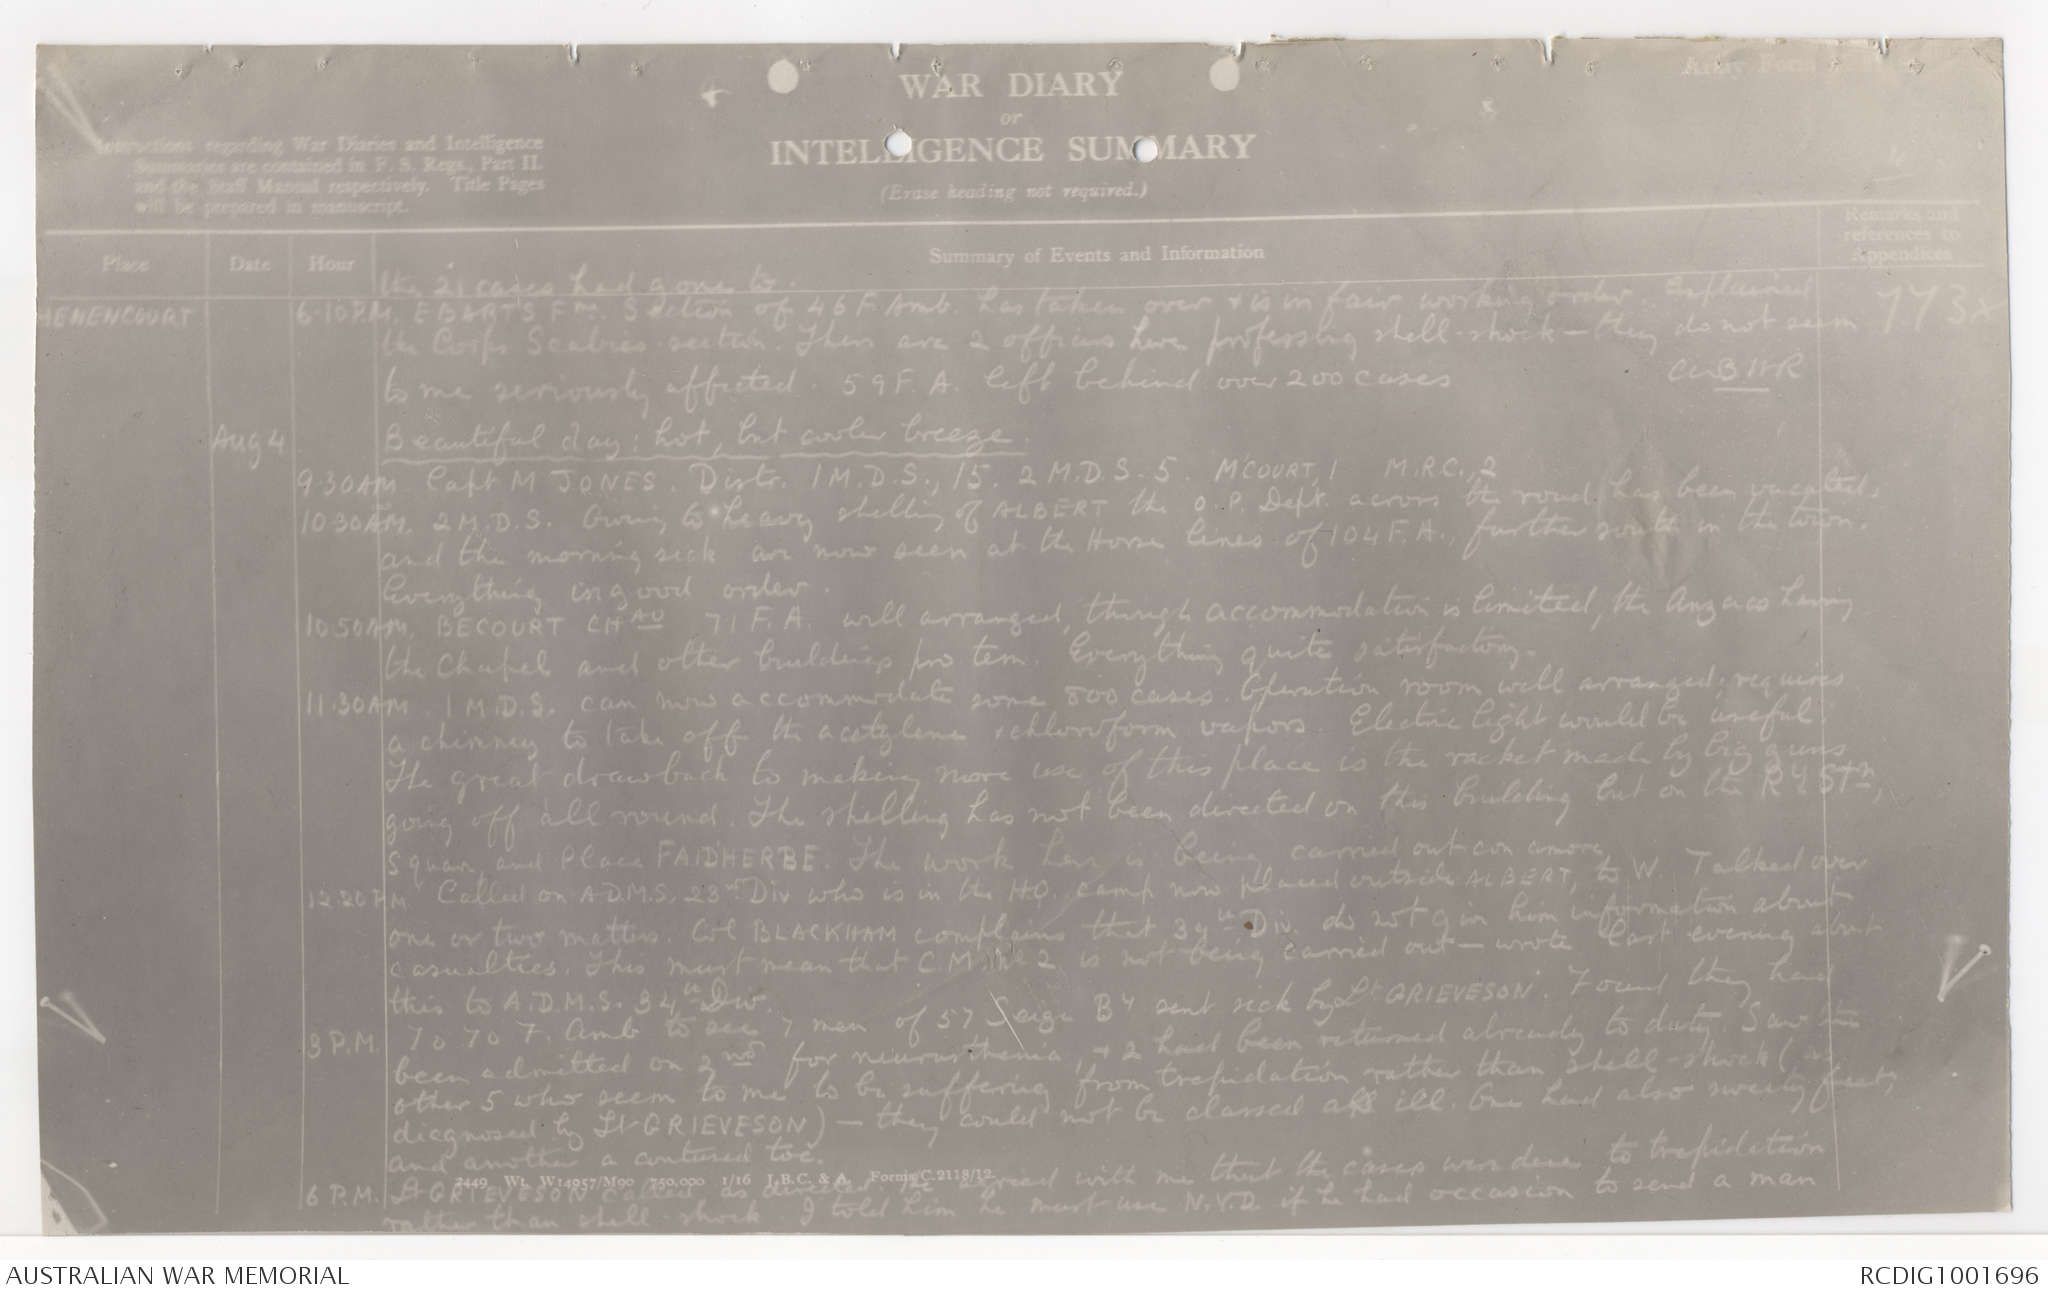 4
WAR DIARY
or
INTELLIGENCE SUMMARY
(Erase heading not required.)
Army Form
Instructions regarding War Diaries and Intelligence
Summaries are contained in F. S. Regs., Part II.
and the Staff Manual respectively. Title Pages
will be prepared in manuscript.
Place Date Hour Summary of Events and Information Remarks and references to Appendices
the 21 cases had gone to.
HENENCOURT 6.10 P.M. EBARTS Fm. Section of 46 F Amb. has taken over + is in fair working order. Explained
the Corps Scabies section. There are 2 officers here professing shell-shock — they do not seem
to me seriously affected. 59 F.A. left behind over 200 cases
Aug 4 Beautiful day: hot, but cooler breeze.
9.30 AM. Capt M JONES. Distr. 1 M.D.S., 15. 2 M.D.S. 5. M'COURT, 1 M.R.C., 2
10.30 AM. 2 M.D.S. Owing to heavy shelling of ALBERT the O.P. Dept. across the road has been vacated,
and the morning sick are now seen at the Horse lines of 104 F.A., further south in the town.
Everything in good order.
10.50 AM. BECOURT CHAU 71 F.A. well arranged, though accommodation is limited, the Anzacs having
the Chapel and other buildings pro tem. Everything quite satisfactory.
11.30 AM. 1 M.D.S. can now accommodate some 800 cases. Operation room well arranged; requires
a chimney to take off the acetylene + chloroform vapors. Electric light would be useful.
The great drawback to making more use of this place is the racket made by big guns
going off all round. The shelling has not been directed on this building but on the Ry Stn,
Square and Place FAIDHERBE. The work here is being carried out con amore
12.20 PM. Called on A.D.M.S. 23rd Div who is in the H.Q. camp now placed outside ALBERT, to W. Talked over
one or two matters. Col BLACKHAM complains that 34th Div. do not give him information about
casualties. This must mean that C.M. No 2 is not being carried out — wrote last evening about
this to A.D.M.S. 34th Div.
3 P.M. To 70 F. Amb to see 7 men of 57 Seige By sent sick by Lt GRIEVESON. Found they had
been admitted on 2nd for neurasthenia, + 2 had been returned already to duty. Saw the
other 5 who seem to me to be suffering from trepidation rather than shell-shock (as
diagnosed by Lt GRIEVESON) — they could not be classed as ill. One had also sweaty feet,
and another a contused toe.
2449 Wt. W14957/M90 750,000 1/16 J.B.C. & A. Forms/C.2118/12.
6 P.M. Lt GRIEVESON called as directed. He agreed with me that the cases were due to trepidation
rather than shell-shock. I told him he must use N.Y.D. if he had occasion to send a man
AUSTRALIAN WAR MEMORIAL
RCDIG1001696